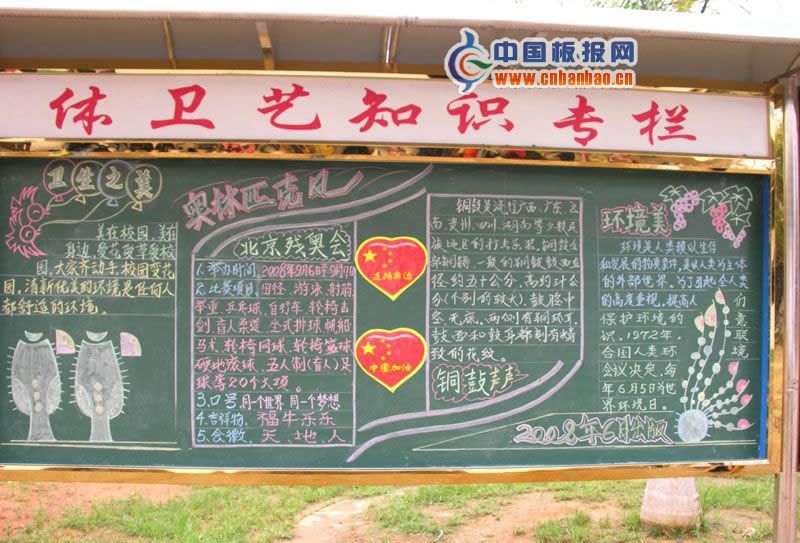 中国板报网
www.cnbanbao.cn
体卫艺知识专栏
卫生之美
美在校园,美在
身边,爱花爱草爱校
园,大家齐动手,校园变花
园,清新优美的环境是任何人
都舒适的环境。
奥林匹克风
北京残奥会
1.举办时间:2008年9月6日-9月17日
2.比赛项目:田径、游泳、射箭
举重、乒乓球、自行车、轮椅击
剑、盲人柔道、坐式排球、帆船
马术、轮椅网球、轮椅篮球
硬地滚球、五人制(盲人)足
球等20个大项。
3.口号:同一个世界 同一个梦想
4.吉祥物:福牛乐乐
5.会徽:天、地、人
迎接奥运
中国加油
铜鼓是流行广西、广东、云
南、贵州、四川、湖南等少数民
族地区的打击乐器,铜鼓全
部铜铸,一般的铜鼓鼓面直
径约五十公分,高约卅公
分(个别的较大),鼓腔中
空,无底,两侧有铜环耳
鼓面和鼓身都刻有精
致的花纹。
铜鼓声声
环境美
环境是人类赖以生存
和发展的物质条件,是以人类为主体
的外部世界,为了引起全人类
的高度重视,提高人们
保护环境的意
识,1972年,联
合国人类环境
会议决定,每
年6月5日为世
界环境日。
2008年6月出版